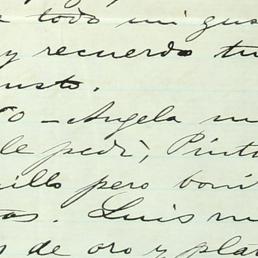 todo mi gus
y recuerdo tu
usto.
o - Angela m
le pedi, Pint
illo pero boni
tas. Luis m
s de oro y plat